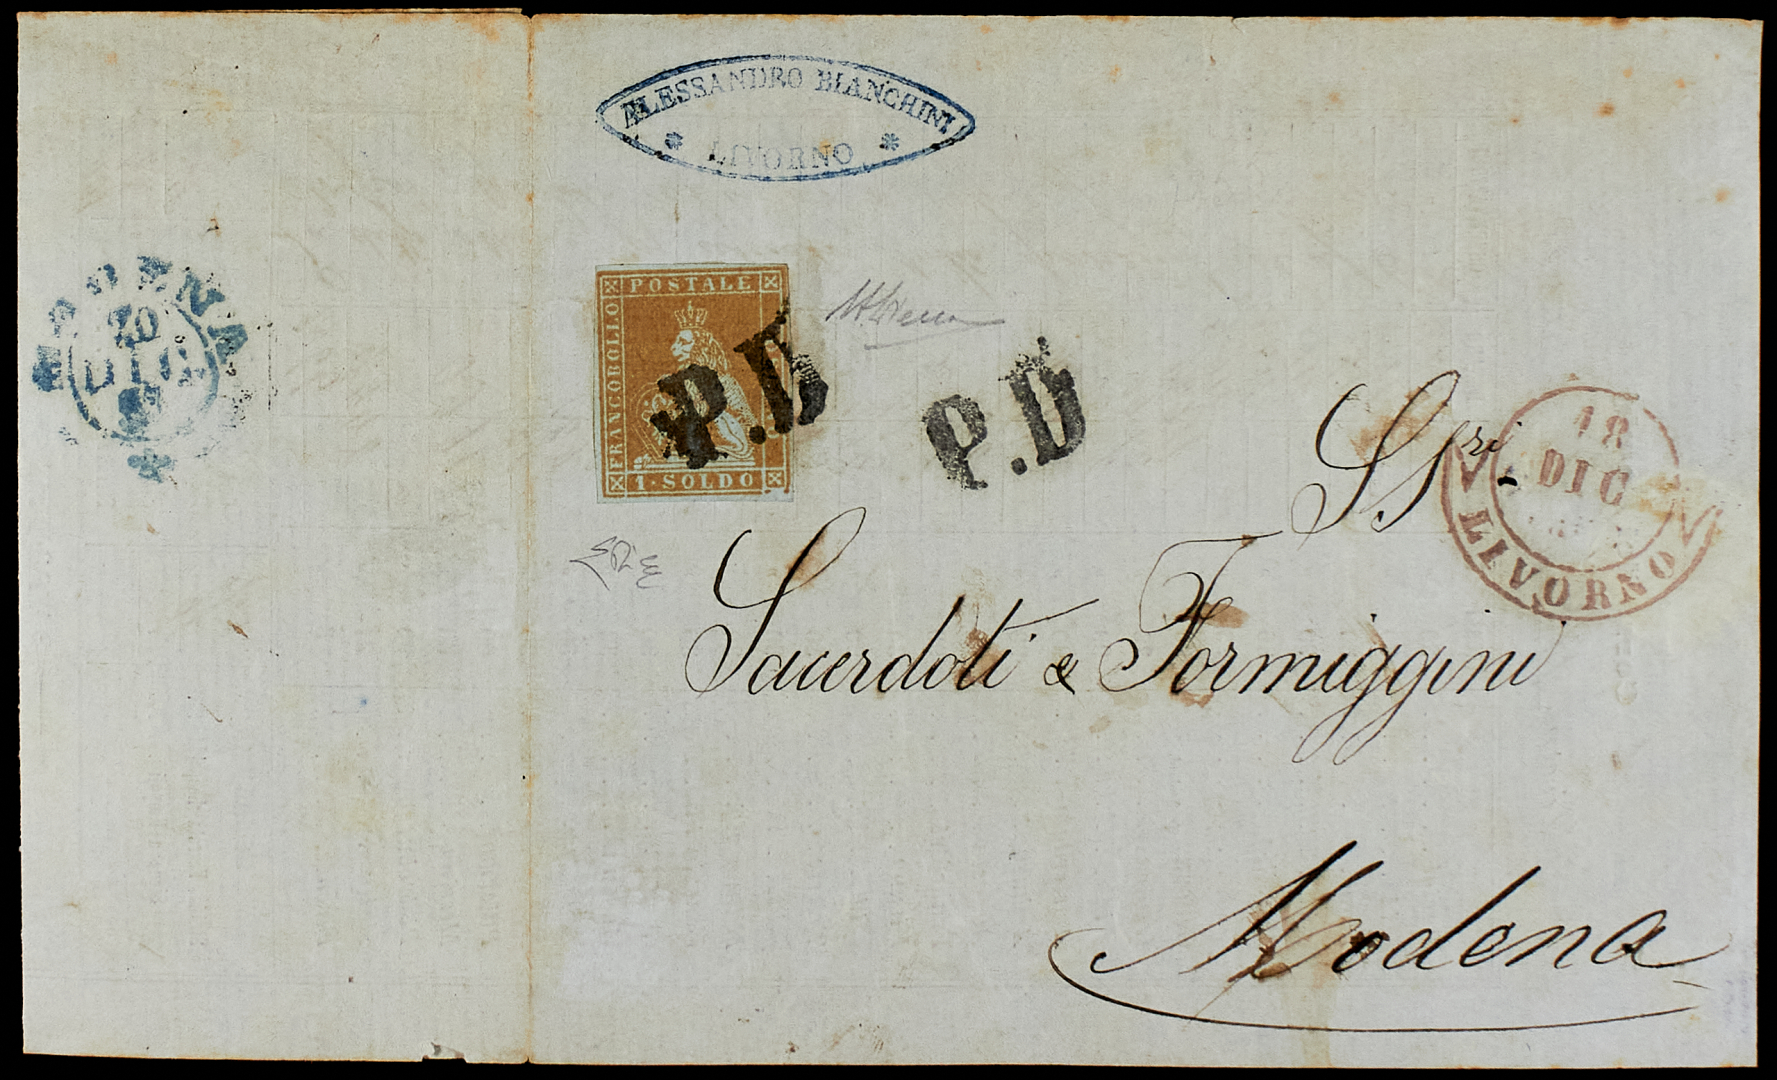 ALESSANDRO BIANCHINI
LIVORNO
MODENA
20
DIC
POSTALE
FRANCOBOLLO
1·SOLDO
P.D
P.D
18
DIC
LIVORNO
SSri
Sacerdoti & Formiggini
Modena